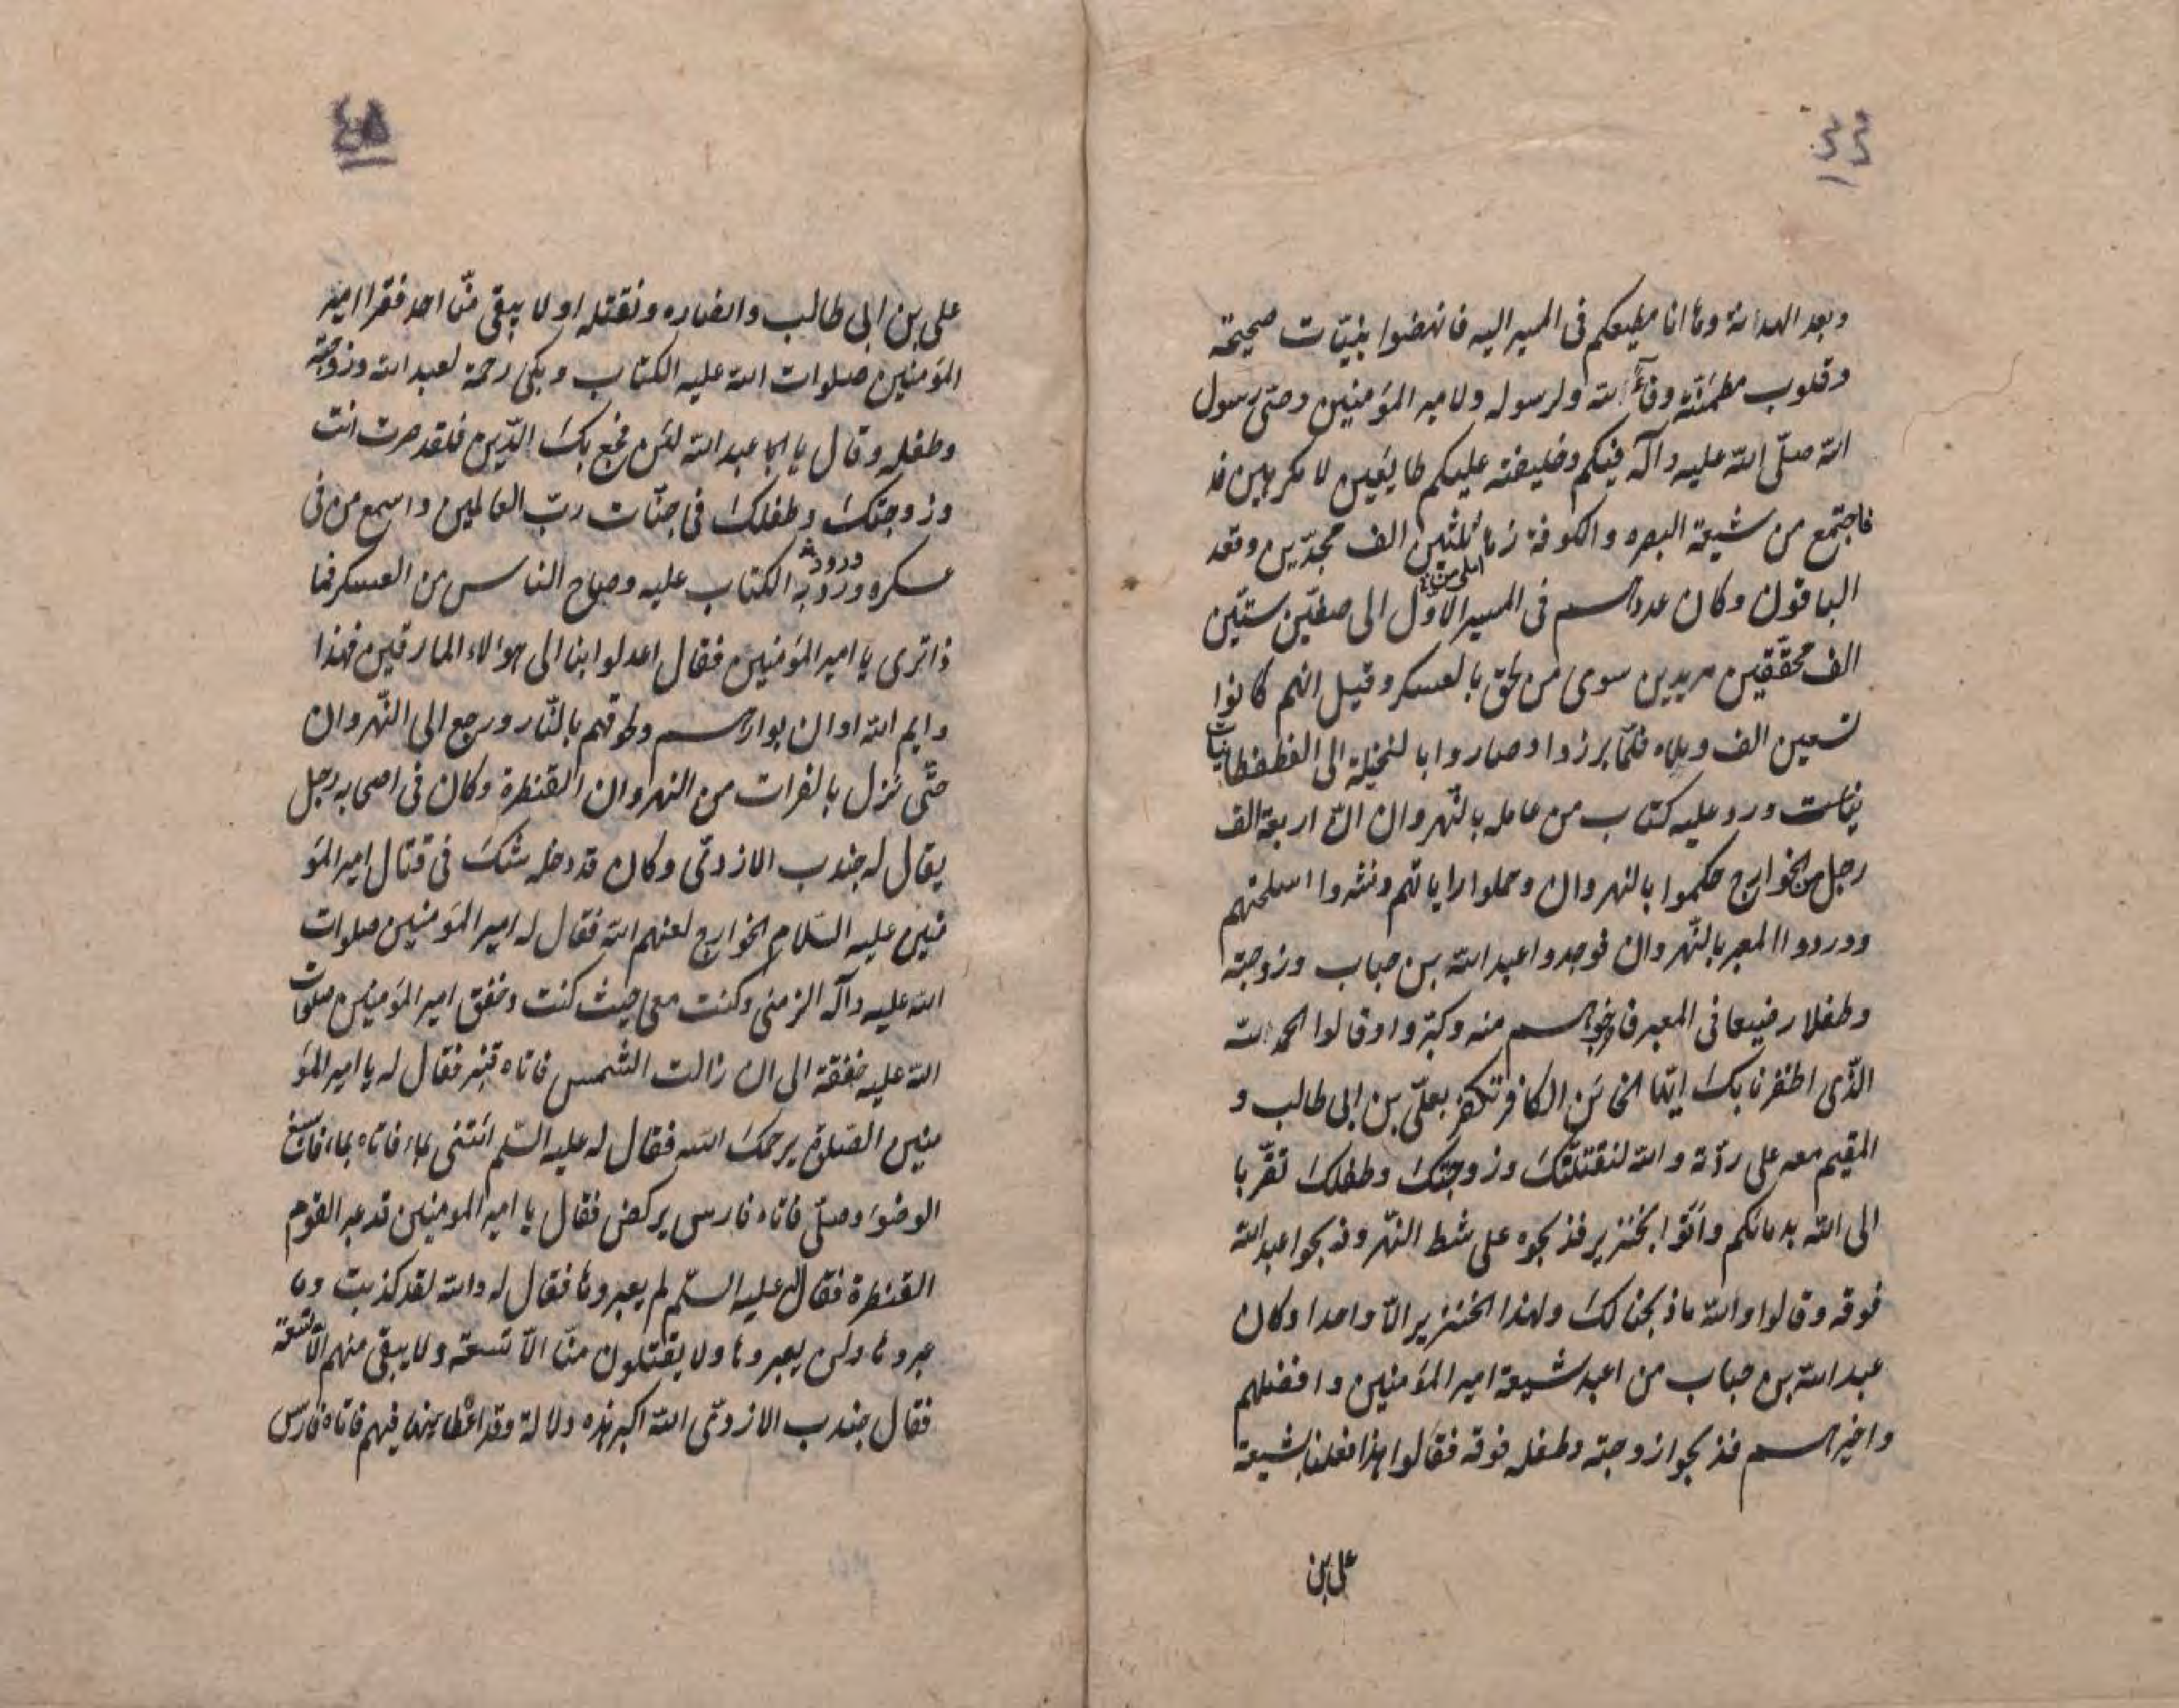 وبعد الهدانة وها انا مطيعكم فى المسير اليه فانهضوا بنيّات صحيحة
وقلوب مطمئنّة وفآء لله ولرسوله ولامير المؤمنين وحق رسول
الله صلّى الله عليه وآله فيكم وخليفته عليكم طايعين لا مكرهين
فاجتمع من شيعة البصره والكوفة زها ثلثين الف مجدّين وقعد
الباقون وكان عددهم فى المسير الاوّل الى صفّين ستّين
الف محققين مريدين سوى من لحق بالعسكر وقيل انهم كانوا
تسعين الف فلمّا برزوا وصاروا بالنخيلة الى القطقطانيات
ورد عليه كتاب من عامله بالنّهروان انّ اربعة الف
رجل من الخوارج حكموا بالنهروان وحملوا راياتهم ونشروا اسلحتهم
ووردوا المعبر بالنّهروان فوجدوا عبد الله بن خباب وزوجته
وطفلا رضيعا فى المعبر منه وكبّروا وقالوا الحمد لله
الّذى اظفرنا بك ايّها الخائن الكافر بعلىّ بن ابى طالب و
المقيم معه على ردّته والله لنقتلنّك وزوجتك وطفلك تقرّبا
الى الله بدمائكم واتوا بخنزير فذبحوه على شط النّهر وذبحوا عبد الله
فوقه وقالوا والله ما ذبحنا لك ولهذا الخنزير الّا واحدا وكان
عبد الله بن خباب من اعبد شيعة امير المؤمنين وافضلهم
واخيرهم فذبحوا زوجته وطفله فوقه فقالوا هذا فعلنا بشيعة
على بن
على بن ابى طالب وانصاره ونقتله او لا يبقى منّا احد فقرا امير
المؤمنين صلوات الله عليه الكتاب وبكى رحمة لعبد الله وزوجته
وطفله وقال يا ابا عبد الله لئن فجع بك الدّين فلقد صرت انت
وزوجتك وطفلك فى جنّات ربّ العالمين واسمع من فى
عسكره ورود الكتاب عليه وصاح الناس من العسكر فما
ذا ترى يا امير المؤمنين فقال اعدلوا بنا الى هؤلاء المارقين فهذا
وايم الله اوان بوارهم ولحوقهم بالنّار ورجع الى النّهروان
حتّى نزل بالفرات من النهروان القنطرة وكان فى اصحابه رجل
يقال له جندب الازدىّ وكان قد دخله شك فى قتال امير المؤ
منين عليه السّلام الخوارج لعنهم الله فقال له امير المؤمنين صلوات
الله عليه وآله الزمنى وكنت معى حيث كنت وخفق امير المؤمنين صلوات
الله عليه خفقة الى ان زالت الشمس فاتاه قنبر فقال له يا امير المؤ
منين الصّلوة يرحمك الله فقال له عليه السّلم ائتنى بماء فاتاه بماء فاسبغ
الوضوء وصلّى فاتاه فارس يركض فقال يا امير المومنين قد عبر القوم
القنطرة فقال عليه السّلم لم يعبروها فقال له والله لقد كذبت وما
عبروها ولن يعبروها ولا يقتلون منّا الّا تسعة ولا يبقى منهم الّا تسعة
فقال جندب الازدىّ الله اكبر هذه دلالة وقد فيهم فاتاه فارس